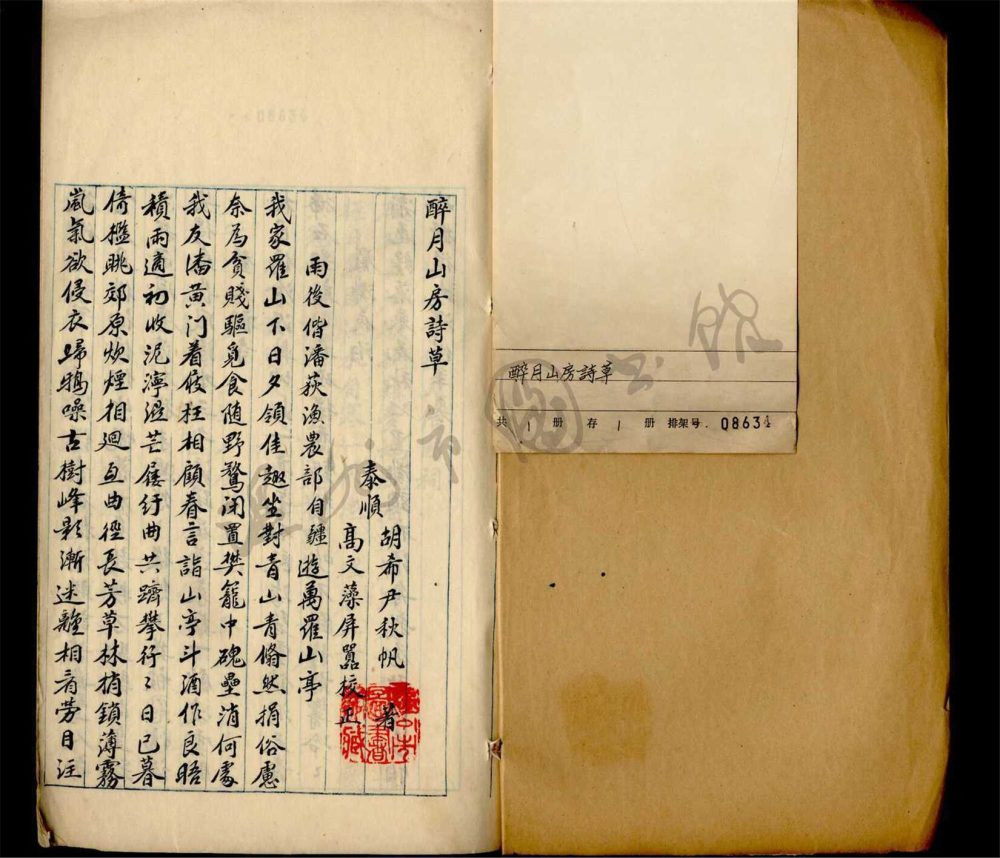 醉月山房詩草
共 1 册 存 1 册 排架号. 08634
醉月山房詩草
胡希尹秋帆 著
泰順
高文藻屏嚚校正
雨後偕潘荻漁農部自疆遊萬羅山亭
我家羅山下日夕領佳趣坐對青山青翛然捐俗慮
奈為貧賤驅覓食随野鶩閉置樊籠中磈壘消何處
我友潘黄门着屐枉相顧眷言詣山亭斗酒作良晤
積雨適初收泥濘澁芒屨紆曲共躋攀行〻日已暮
倚檻眺郊原炊煙相迴互曲徑長芳草林梢鎖薄霧
嵐氣欲侵衣歸鴉噪古樹峰影漸迷離相看勞目注